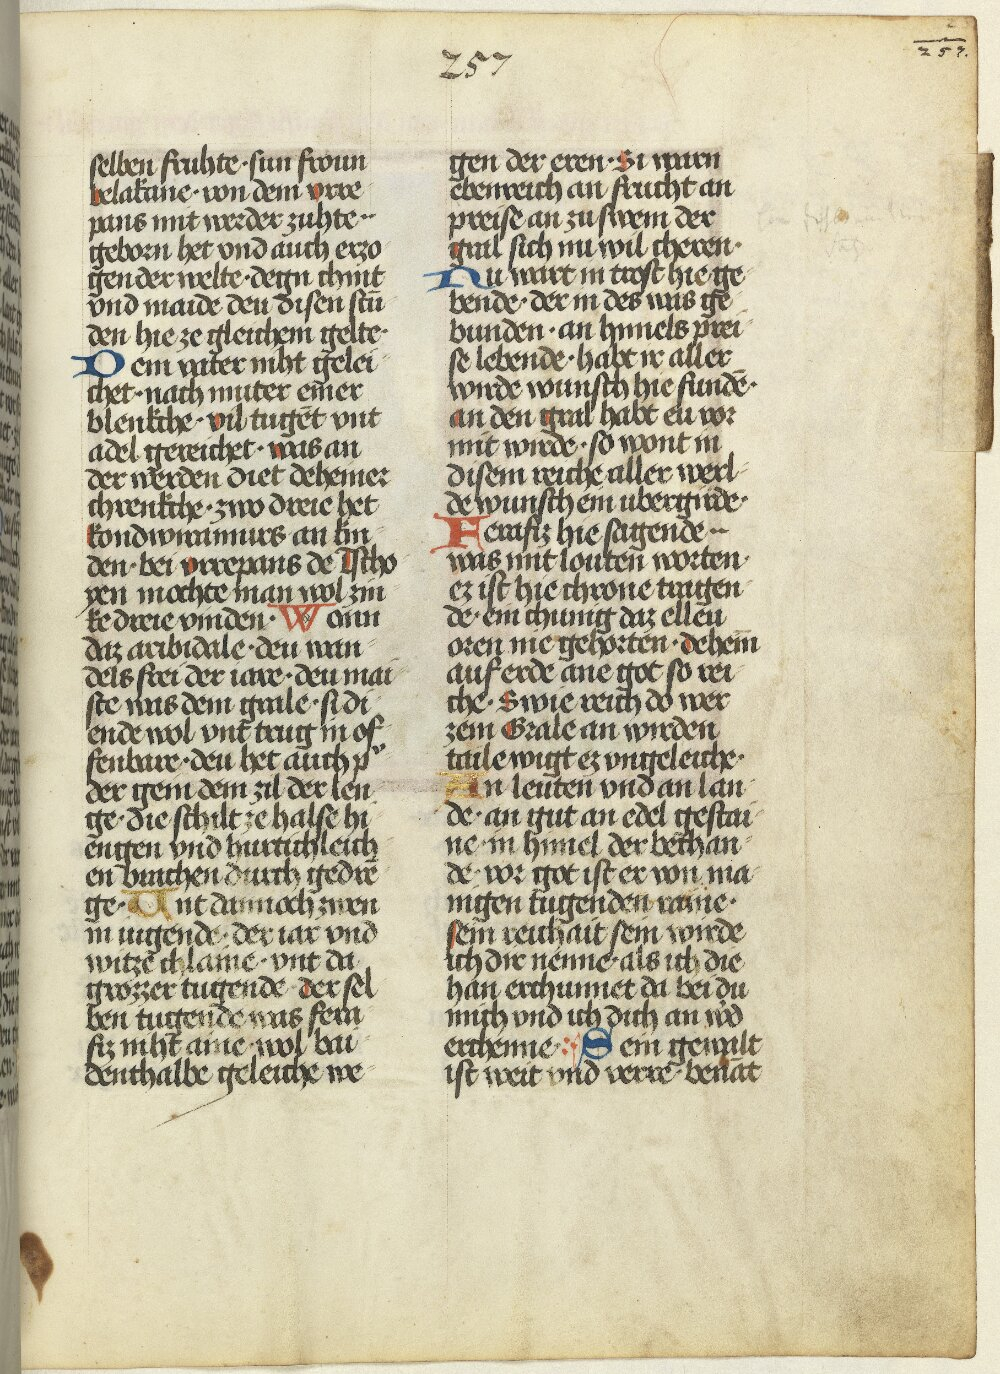 257
257.
selben fruhte · sun froun
belakane · von dem vrre
pans mit werder zuhte ·
geborn het vnd auch erzo
gen der welte · degn chint
vnd maide den disen stū
den hie ze gleichem gelte ·
Dem vater niht gelei
chet · nach muter einer
blenkche · vil tugēt vnt
adel gereichet · was an
der werden diet deheiner
chrenkche · zwo dreie het
kondwiramurs an kin
den · bei vrrepans de Tscho
yen mochte man wol zin
ke dreie vinden · Wonn
daz aribidale · den wan
dels frei der iare · den mai
ste was dem grale · si di
ende wol vnt trug in of
fenbare · den het auch p
der gern dem zil der len
ge · die schilt ze halse hi
engen vnd hurtichleich
en brachen durch gedrē
ge · Unt dannoch zwen
in iugende · der iar vnd
witze chlaine · vnt da
grozzer tugende · der sel
ben tugende was fera
fiz niht aine · wol bai
denthalbe geleiche we
gen der eren · Si warn
ebenreich an frucht an
preise an zu swem der
gral sich nu wil cheren ·
Nu wart in trost hie ge
bende · der in des was ge
bunden · an himels prei
se lebende · habt ir aller
wirde wunsch hie fundē ·
an den gral habt eu vor
mit wirde · so wont in
disem reiche aller werl
de wunsch ein ubergrade ·
Ferafiz hie sagende ·
was mit louten worten ·
ez ist hie chrone tragen
de · ein chunig daz elleu
oren nie gehorten · dehein
auf erde ane got so rei
che · Swie reich do wer
zem Grale an wirden
taile wigt ez vngeleiche ·
An leuten vnd an lan
de · an gut an edel gestai
ne · in himel der bechan
de · vor got ist er von ma
nigen tugenden raine ·
sein reichait sein wirde
ich dir nenne · als ich die
han erchunnet da bei du
mich vnd ich dich an wd
erchenne · Sein gewalt
ist weit vnd verre · benāt